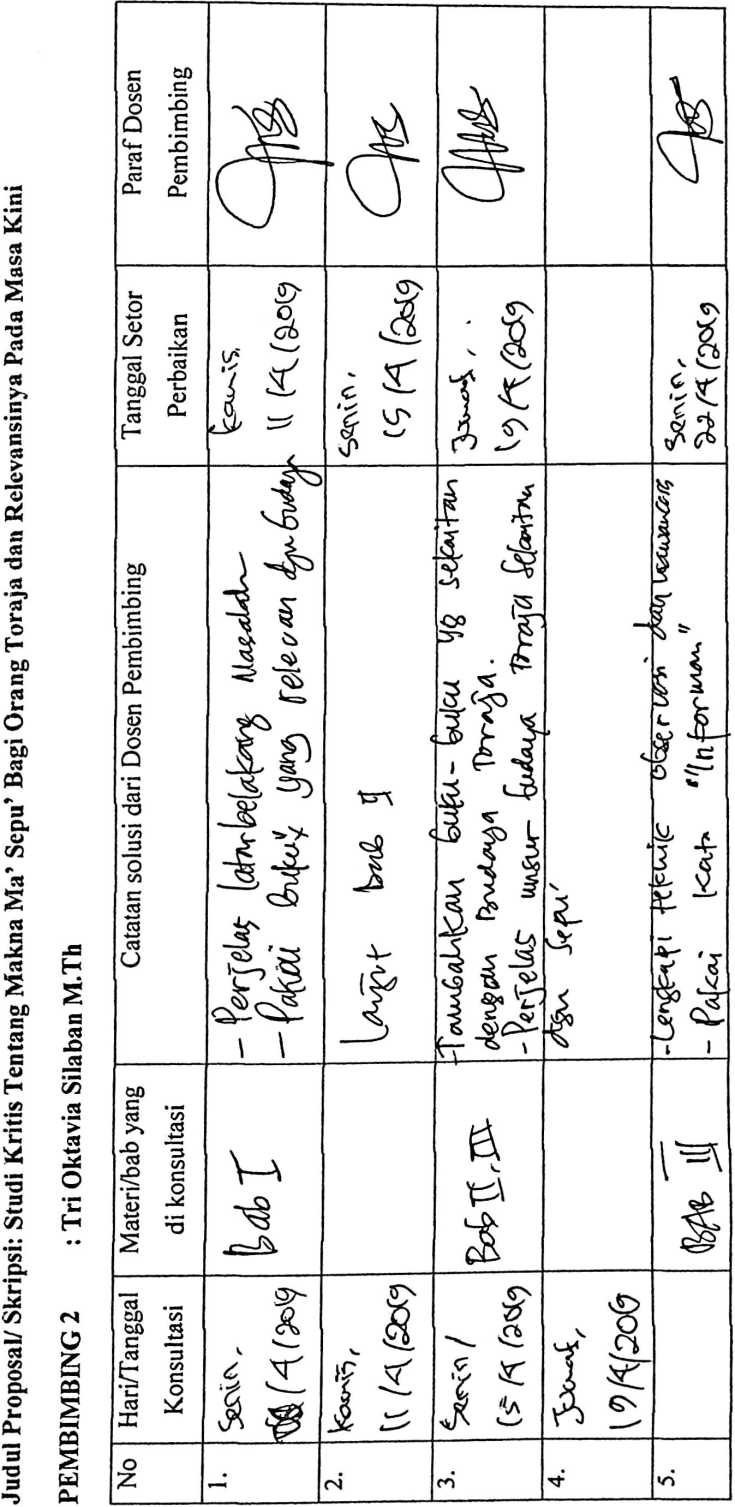 Judul Proposal/ Skripsi: Studi Kritis Tentang Makna Ma' Sepu' Bagi Orang Toraja dan Relevansinya Pada Masa Kini
PEMBIMBING 2 : Tri Oktavia Silaban M.Th
No Hari/Tanggal Konsultasi Materi/bab yang di konsultasi Catatan solusi dari Dosen Pembimbing Tanggal Setor Perbaikan Paraf Dosen Pembimbing
1. Senin, /4/2019 Bab I
- Perjelas latar belakang Masalah
- Pakai buku² yang relevan dgn budaya
Kamis, 11/4/2019
2. Kamis, 11/4/2019
Lanjut bab II
Senin, 15/4/2019
3. Senin/ 15/4/2019 Bab II, III
- Tambahkan buku-buku yg sekaitan
dengan Budaya Toraja.
- Perjelas unsur budaya Toraja sekaitan
dgn sepu'
Jumat, 19/4/2019
4. Jumat, 19/4/2019
5. BAB III
- Lengkapi teknik observasi dan wawancara
- Pakai kata "Informan"
Senin, 22/4/2019